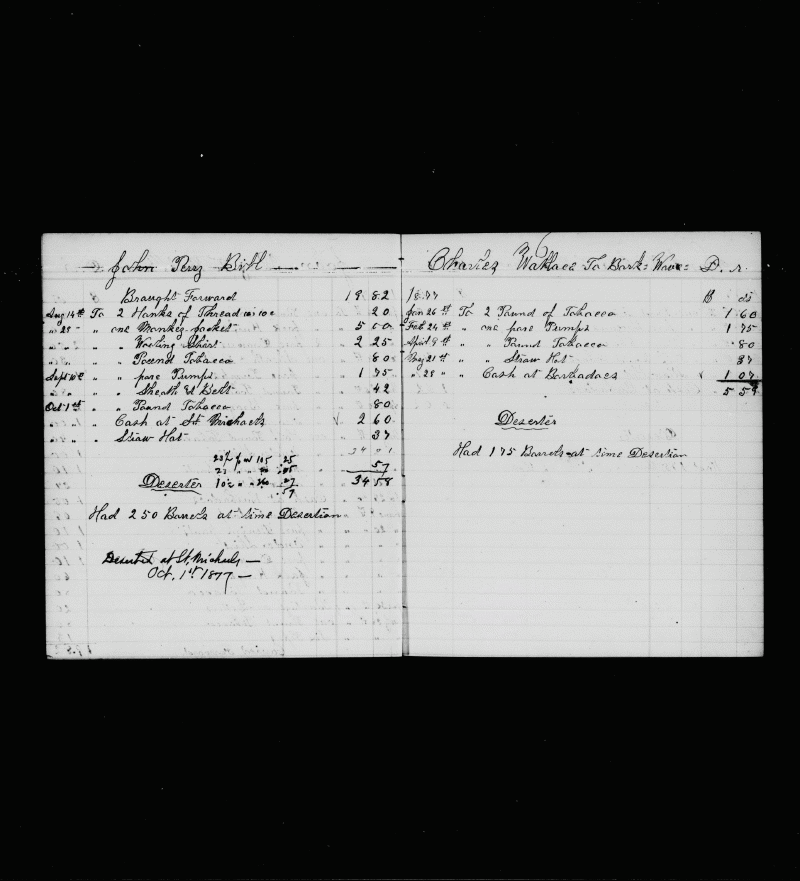 John Perry Bill
Braught Forward 19 82
Aug 14th To 2 Hanks of Thread 10c 20
" 25 " " one Monkey Jacket 5 00
" " " " Woolling Shirt 2 25
" " " " Pound Tobacco 80
Sept 10th " " pare Pumps 1 75
" " " " Sheath & Belt 42
Oct 1st " " Pound Tobacco 80
" " " Cash at St Michaels √ 2 60
" " " Straw Hat 37
34 01
57
Deserter 34 58
Had 250 Barrels at time Desertion
Deserted at St. Michaels —
Oct. 1st 1877 —
36
Charles Wallace To Bark D. r.
1877 $ cts
Jan 26th To 2 Pound of Tobacco 1 60
Feb 24th " one pare Pumps 1 75
April 9th " " Pound Tobacco 80
May 21st " " Straw Hat 37
" 28 " " Cash at Barbadoes √ 1 07
5 59
Deserter
Had 175 Barrels at time Desertion